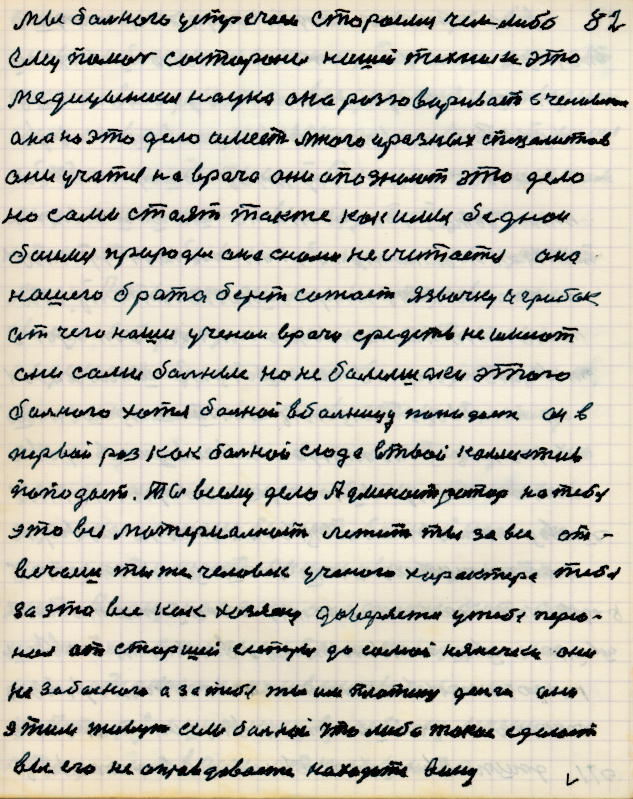 мы балного устречаем стораемя чем либо 82
Ему помоч састороны нашей техники это
медицынская наука она розговаривает с человеком
ана на это дело имеет много и разных специалистов
они учатся на врача они опознают это дело
но сами стаят также как и мы бедном
баимя природы она снами не считается она
нашего брата берет сажает язвочку и грибок
от чего наши ученаи врачи средств не имеют
они сами балные но не балелшики этого
балного хотя балной вбалницу попадаеть он в
первай раз как балной сюда в твой коллектив
попадает. Ты всему дело Админостратор на тебя
это вся материалность лежит ты за все от-
вечаеш ты же человек ученого характера тебе
за это все как хозяену даверяется утебя персо-
нал от старшей сестры до самой нянечки они
не забалного а за тебя ты им платиш денги они
этим живут если балной что либо такое сделает
вы его не оправдоваете находете вину